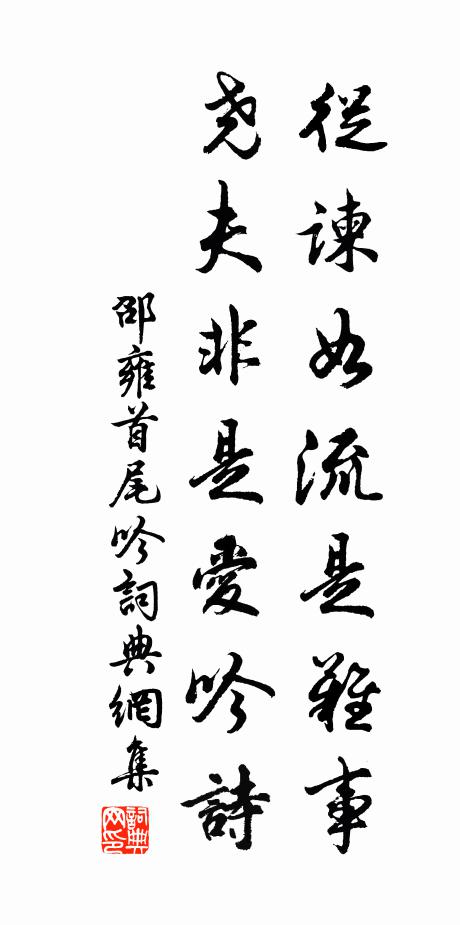 從諫如流是難事
堯夫非是愛吟詩
邵雍首尾吟詞典網集
詞典网印